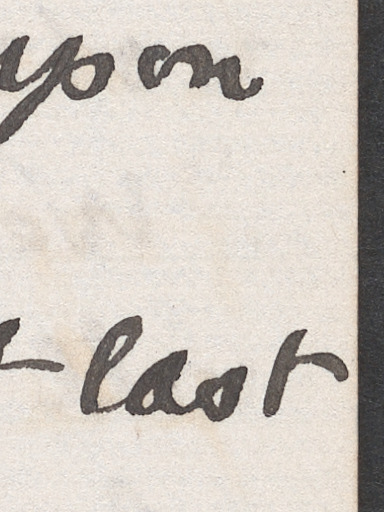 upon
t last